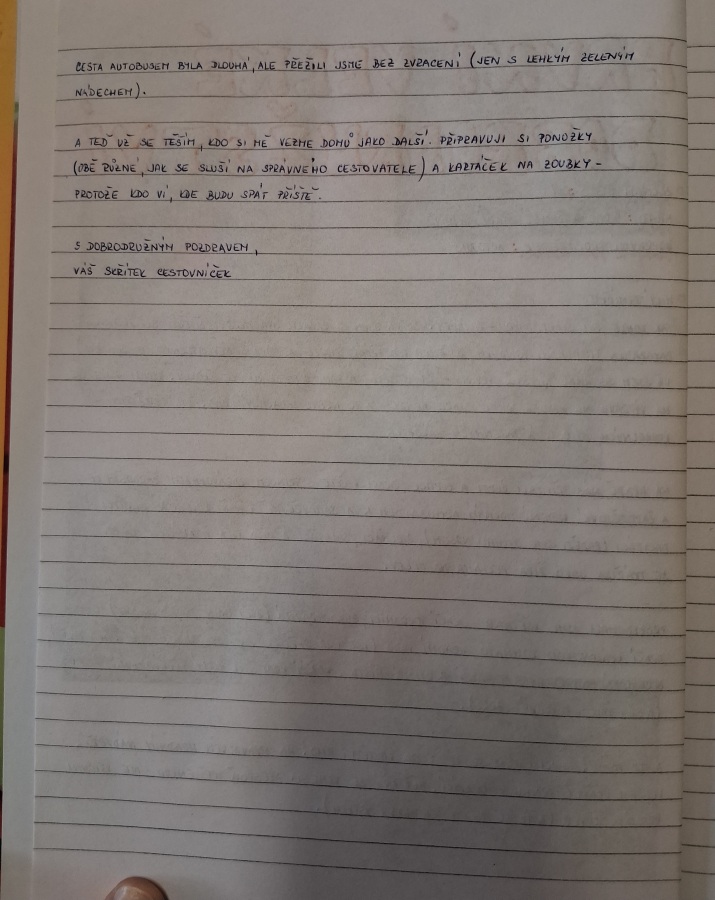 CESTA AUTOBUSEM BYLA DLOUHÁ, ALE PŘEŽILI JSME BEZ ZVRACENÍ (JEN S LEHKÝM ZELENÝM
NÁDECHEM).
A TEĎ UŽ SE TĚŠÍM, KDO SI MĚ VEZME DOMŮ JAKO DALŠÍ. PŘIPRAVUJI SI PONOŽKY
(OBĚ RŮZNÉ, JAK SE SLUŠÍ NA SPRÁVNÉHO CESTOVATELE) A KARTÁČEK NA ZOUBKY -
PROTOŽE KDO VÍ, KDE BUDU SPÁT PŘÍŠTĚ.
S DOBRODRUŽNÝM POZDRAVEM,
VÁŠ SKŘÍTEK CESTOVNÍČEK